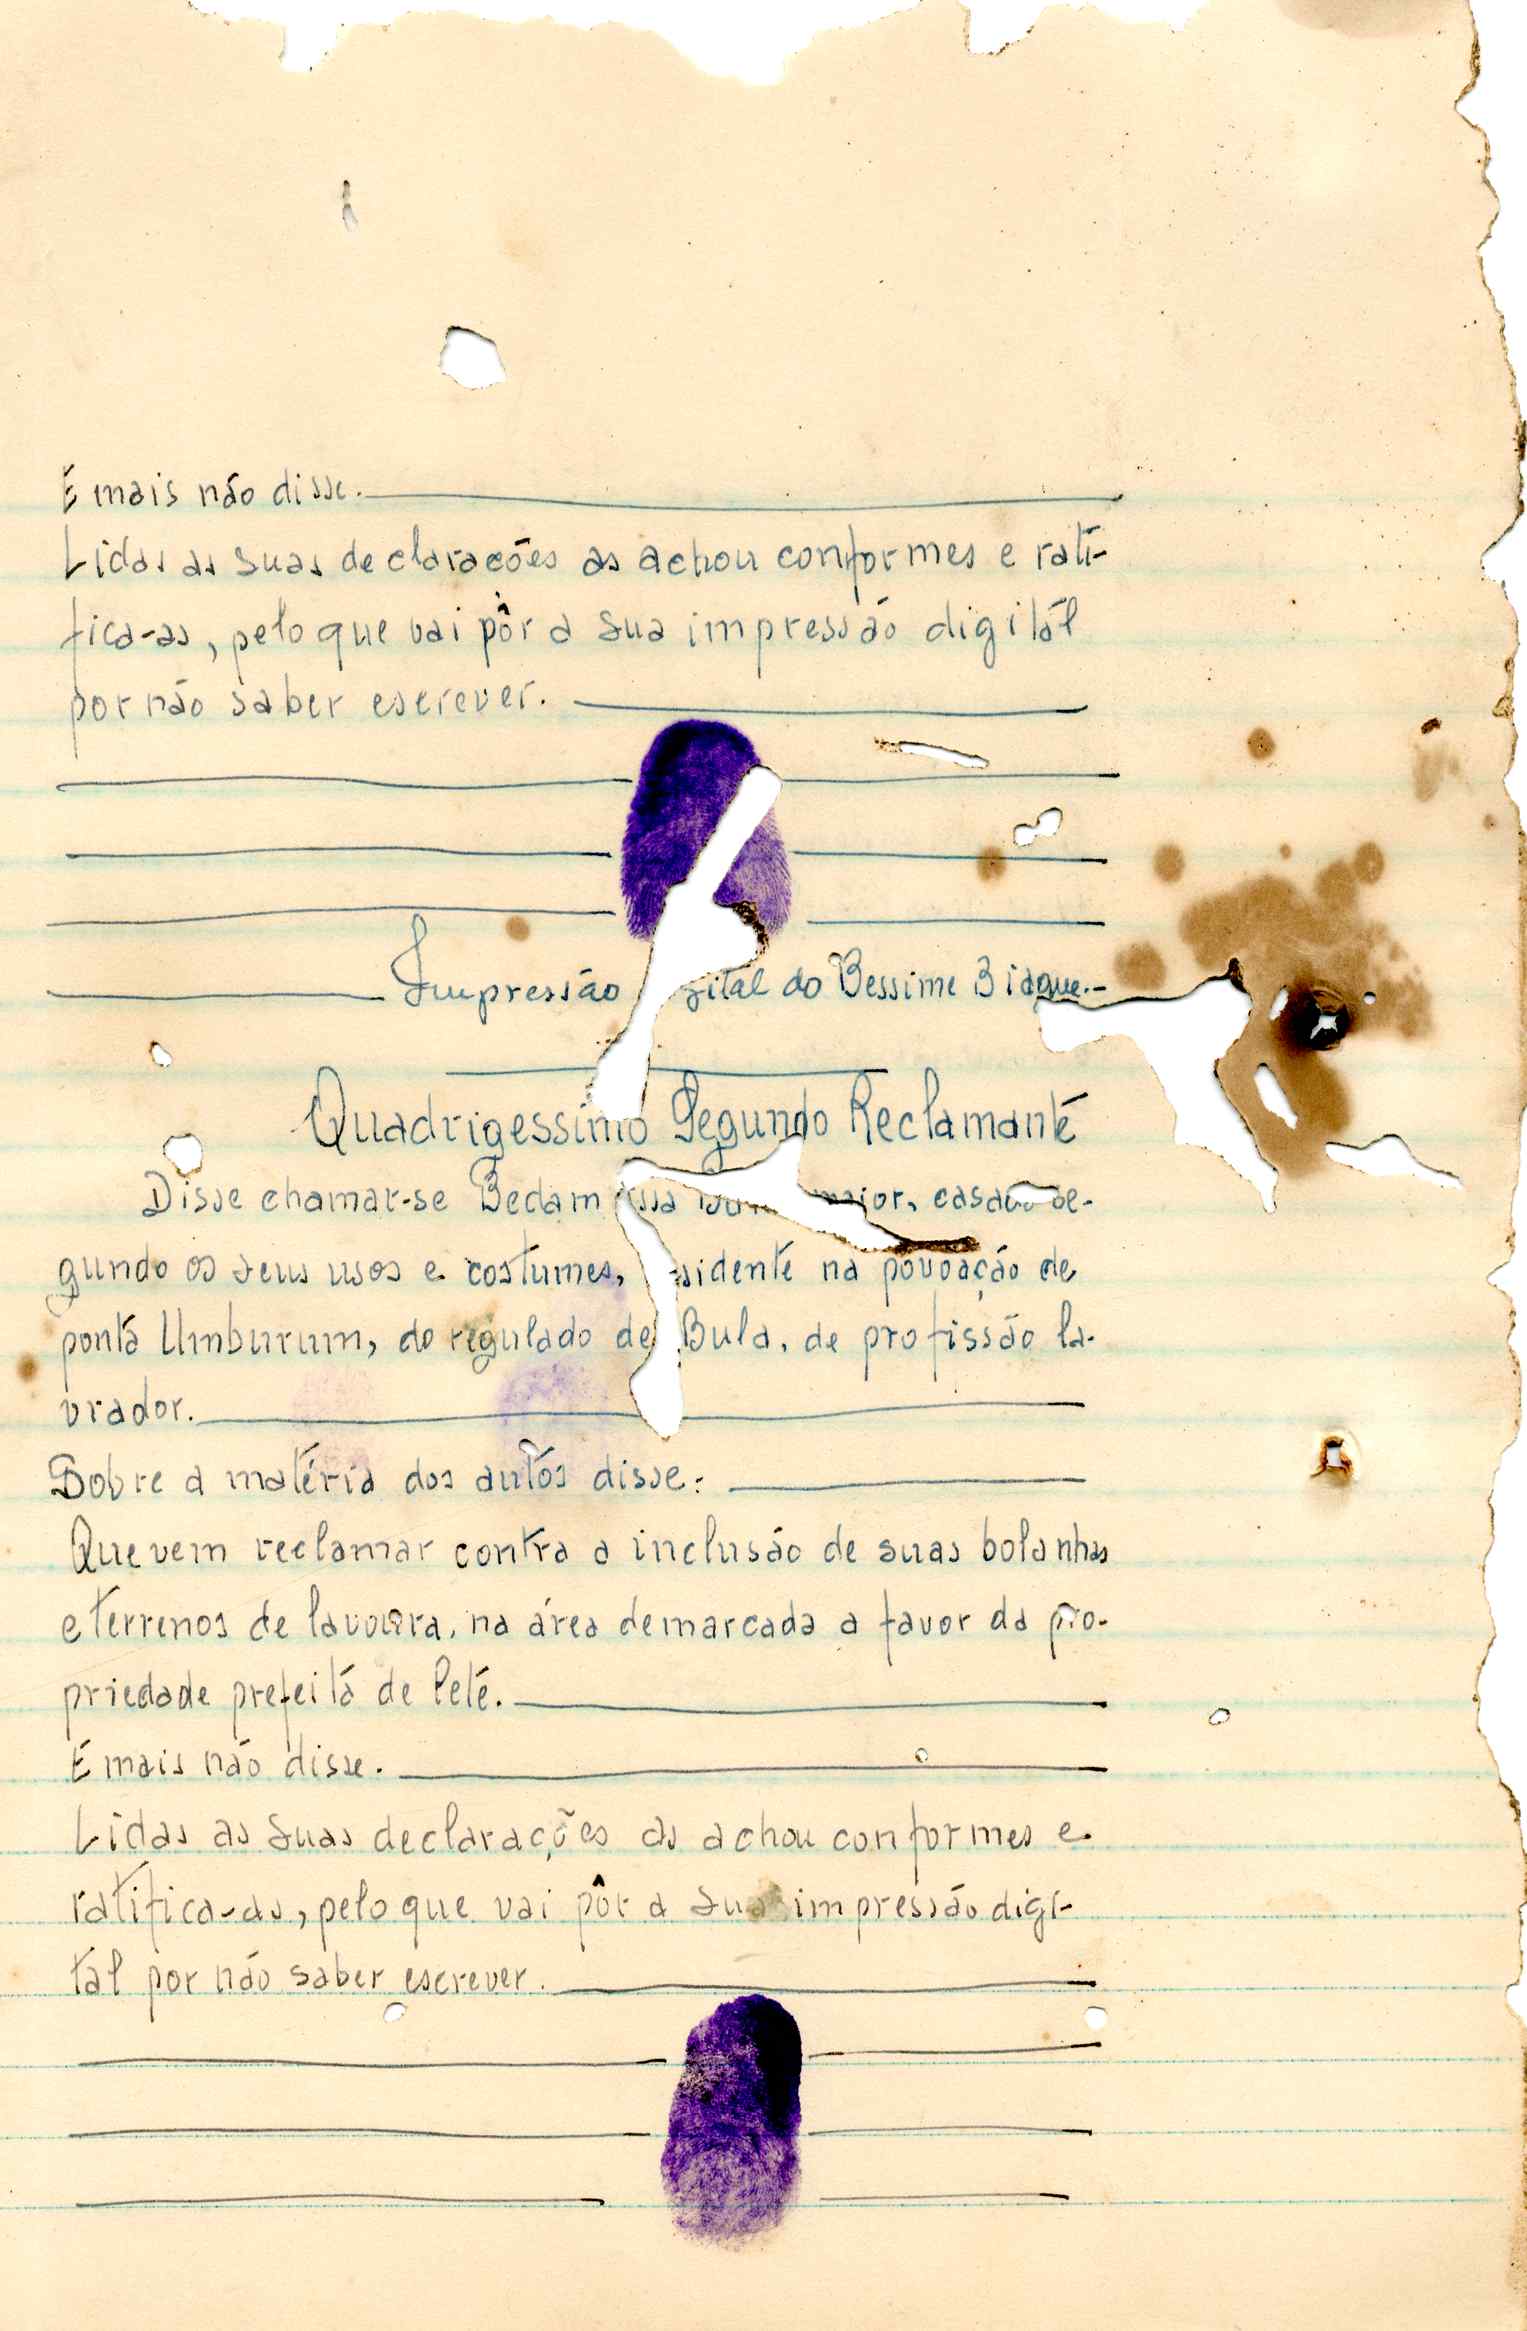 E mais não disse.
Lidas as suas declarações as achou conformes e rati-
fica-as, pelo que vai pôr a sua impressão digitál
por não saber escrever.
Impressão gital do Bessime Biague.-
Quadrigessimo Segundo Reclamante
Disse chamar-se Bedam maior, casado se-
gundo os seus usos e costumes, sidente na povoação de
ponta Umburum, do regulado de Bula, de profissão la-
vrador.
Sobre a matéria dos autos disse:
Que vem reclamar contra a inclusão de suas bolanhas
e terrenos de lavoura, na área demarcada a favor da pro-
priedade prefeita de Peté.
E mais não disse.
Lidas as suas declarações as achou conformes e
ratifica-as, pelo que vai pôr a sua impressão digi-
tal por não saber escrever.